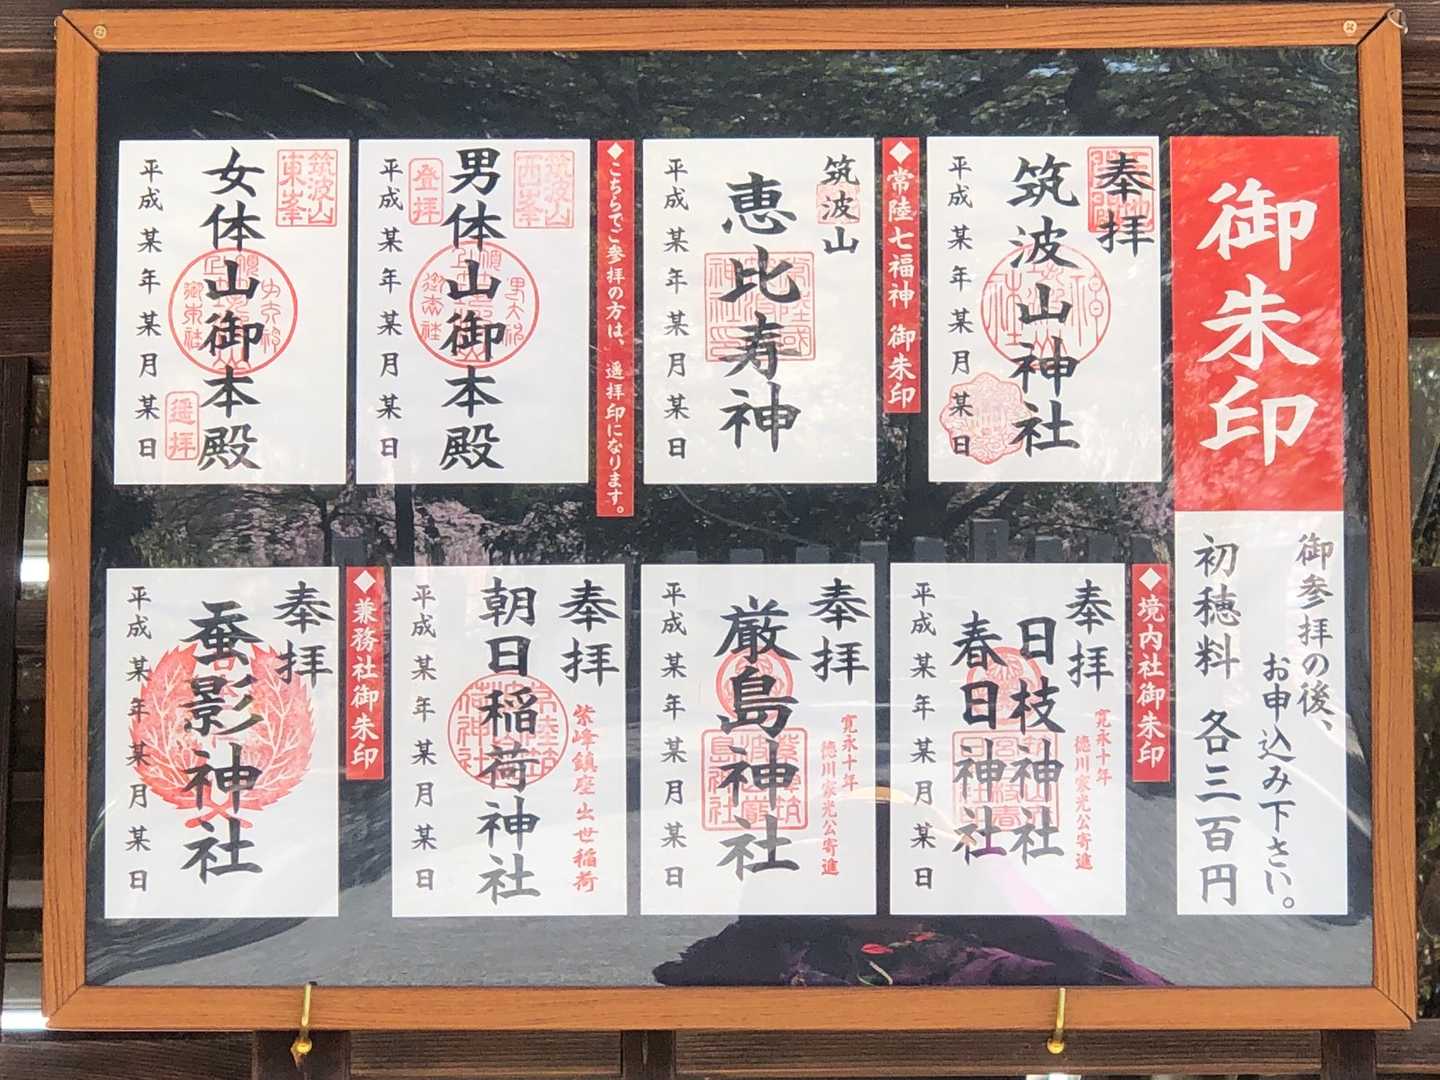 御朱印
御参拝の後、
お申込み下さい。
初穂料 各三百円
奉拝
筑波山神社
平成某年某月某日
◆常陸七福神 御朱印
筑波山
恵比寿神
平成某年某月某日
◆こちらでご参拝の方は、遥拝印になります。
筑波山
西峯
登拝
男体山御本殿
平成某年某月某日
筑波山
東峯
女体山御本殿
遥拝
平成某年某月某日
◆境内社御朱印
奉拝
寛永十年
徳川家光公寄進
日枝神社
春日神社
平成某年某月某日
奉拝
寛永十年
徳川家光公寄進
厳島神社
平成某年某月某日
奉拝
紫峰鎮座出世稲荷
朝日稲荷神社
平成某年某月某日
◆兼務社御朱印
奉拝
蚕影神社
平成某年某月某日